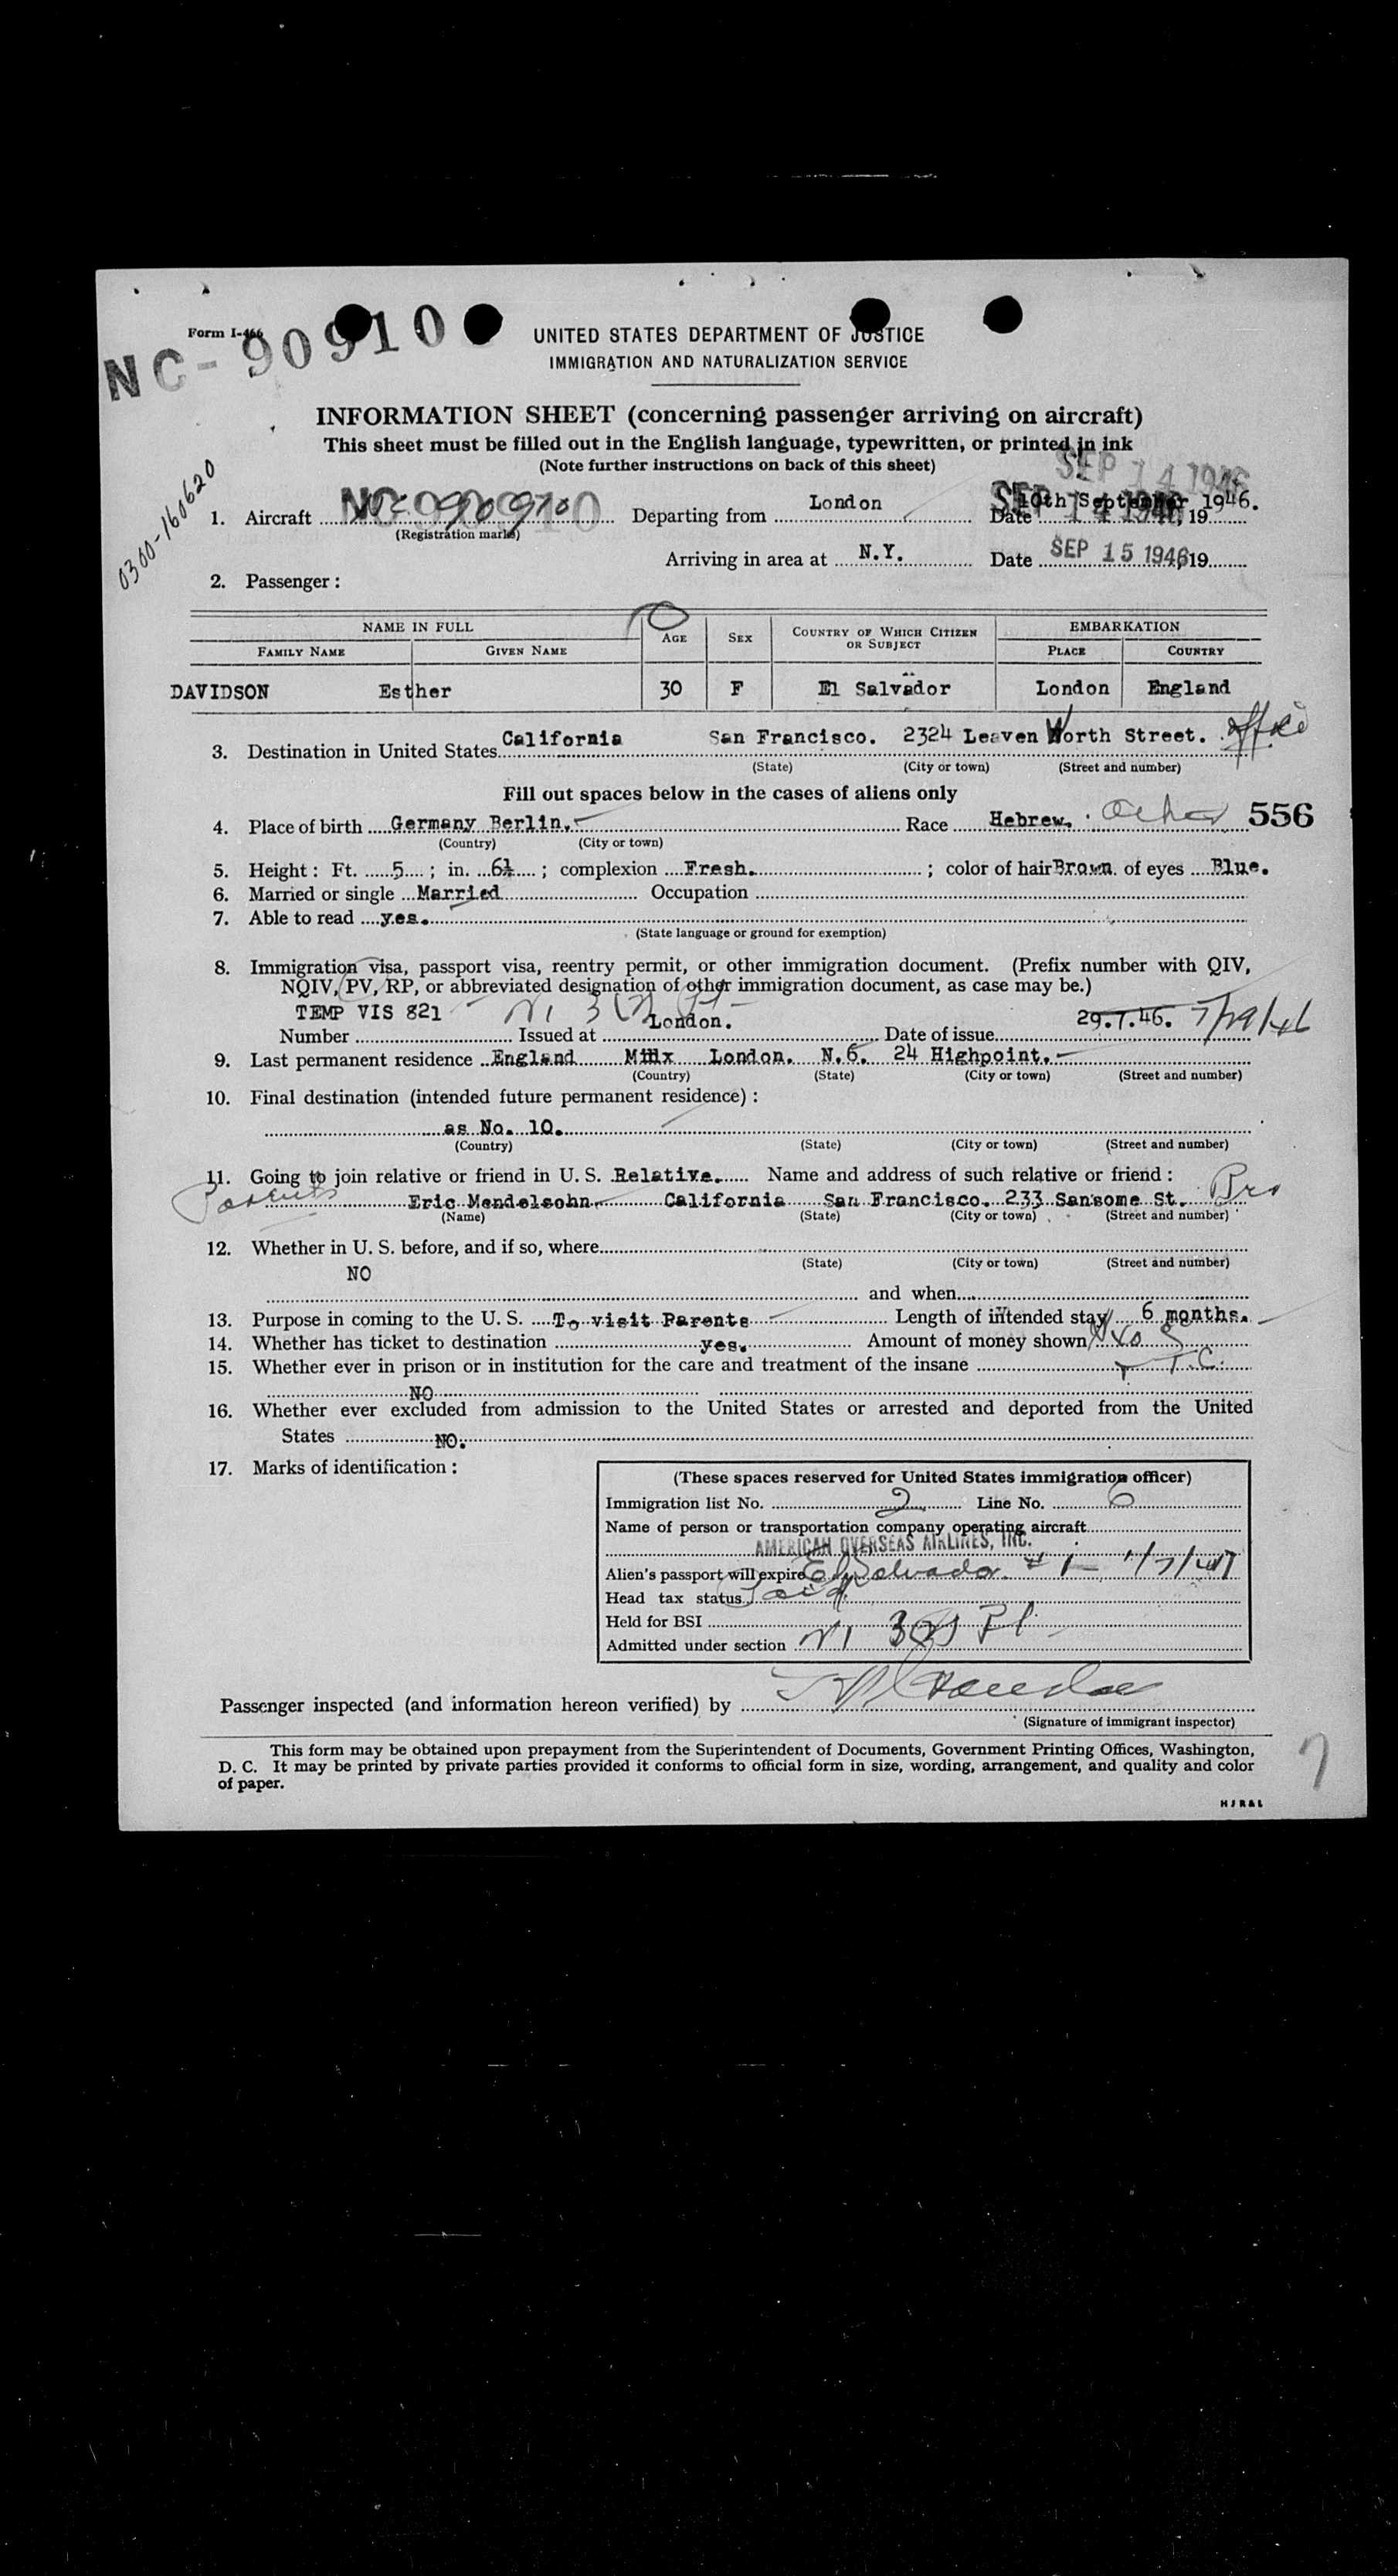 Form I-466
NC-90910
UNITED STATES DEPARTMENT OF JUSTICE
IMMIGRATION AND NATURALIZATION SERVICE
INFORMATION SHEET (concerning passenger arriving on aircraft)
This sheet must be filled out in the English language, typewritten, or printed in ink
(Note further instructions on back of this sheet)
0300-160620
SEP 14 1946
1. Aircraft NC 90910 Departing from London Date 10th September 1946. , 19
(Registration marks)
Arriving in area at N.Y. Date SEP 15 1946, 19
2. Passenger:
NAME IN FULL AGE SEX COUNTRY OF WHICH CITIZEN OR SUBJECT EMBARKATION
FAMILY NAME GIVEN NAME PLACE COUNTRY
DAVIDSON Esther 30 F El Salvador London England
3. Destination in United States California San Francisco. 2324 Leaven Worth Street.
(State) (City or town) (Street and number)
Fill out spaces below in the cases of aliens only
4. Place of birth Germany Berlin. Race Hebrew. 556
(Country) (City or town)
5. Height: Ft. 5 ; in. 6½ ; complexion Fresh. ; color of hair Brown. of eyes Blue.
6. Married or single Married Occupation
7. Able to read yes.
(State language or ground for exemption)
8. Immigration visa, passport visa, reentry permit, or other immigration document. (Prefix number with QIV,
NQIV, PV, RP, or abbreviated designation of other immigration document, as case may be.)
TEMP VIS 821 London. 29.7.46. 7/29/46
Number Issued at Date of issue
9. Last permanent residence England Midx London. N.6. 24 Highpoint.
(Country) (State) (City or town) (Street and number)
10. Final destination (intended future permanent residence):
as No. 10.
(Country) (State) (City or town) (Street and number)
11. Going to join relative or friend in U. S. Relative. Name and address of such relative or friend:
Parents Eric Mendelsohn. California San Francisco. 233 Sansome St.
(Name) (State) (City or town) (Street and number)
12. Whether in U. S. before, and if so, where
(State) (City or town) (Street and number)
NO
and when
13. Purpose in coming to the U. S. To visit Parents Length of intended stay 6 months.
14. Whether has ticket to destination yes. Amount of money shown
15. Whether ever in prison or in institution for the care and treatment of the insane
NO
16. Whether ever excluded from admission to the United States or arrested and deported from the United
States NO.
17. Marks of identification:
(These spaces reserved for United States immigration officer)
Immigration list No. 2 Line No. 6
Name of person or transportation company operating aircraft
AMERICAN OVERSEAS AIRLINES, INC.
Alien's passport will expire El Salvador # 1 - 1/7/47
Head tax status Paid
Held for BSI
Admitted under section
Passenger inspected (and information hereon verified) by
(Signature of immigrant inspector)
This form may be obtained upon prepayment from the Superintendent of Documents, Government Printing Offices, Washington,
D. C. It may be printed by private parties provided it conforms to official form in size, wording, arrangement, and quality and color
of paper.
7
H J R & L